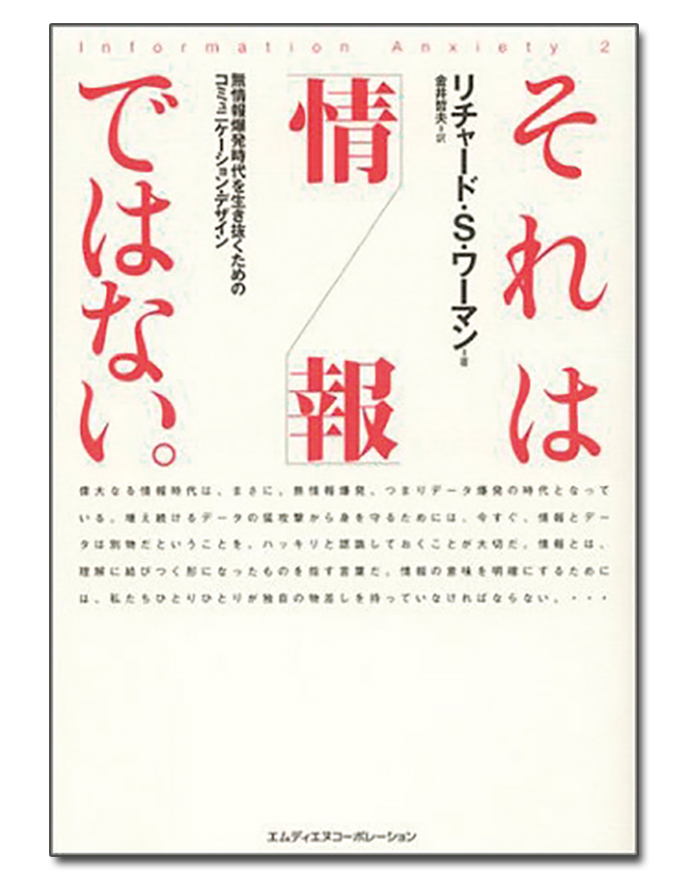 Information Anxiety 2
それは
リチャード・S・ワーマン=著
金井哲夫=訳
情報
無情報爆発時代を生き抜くための
コミュニケーション・デザイン
ではない。
偉大なる情報時代は、まさに、無情報爆発、つまりデータ爆発の時代となって
いる。増え続けるデータの猛攻撃から身を守るためには、今すぐ、情報とデー
タは別物だということを、ハッキリと認識しておくことが大切だ。情報とは、
理解に結びつく形になったものを指す言葉だ。情報の意味を明確にするために
は、私たちひとりひとりが独自の物差しを持っていなければならない。・・・
エムディエヌコーポレーション